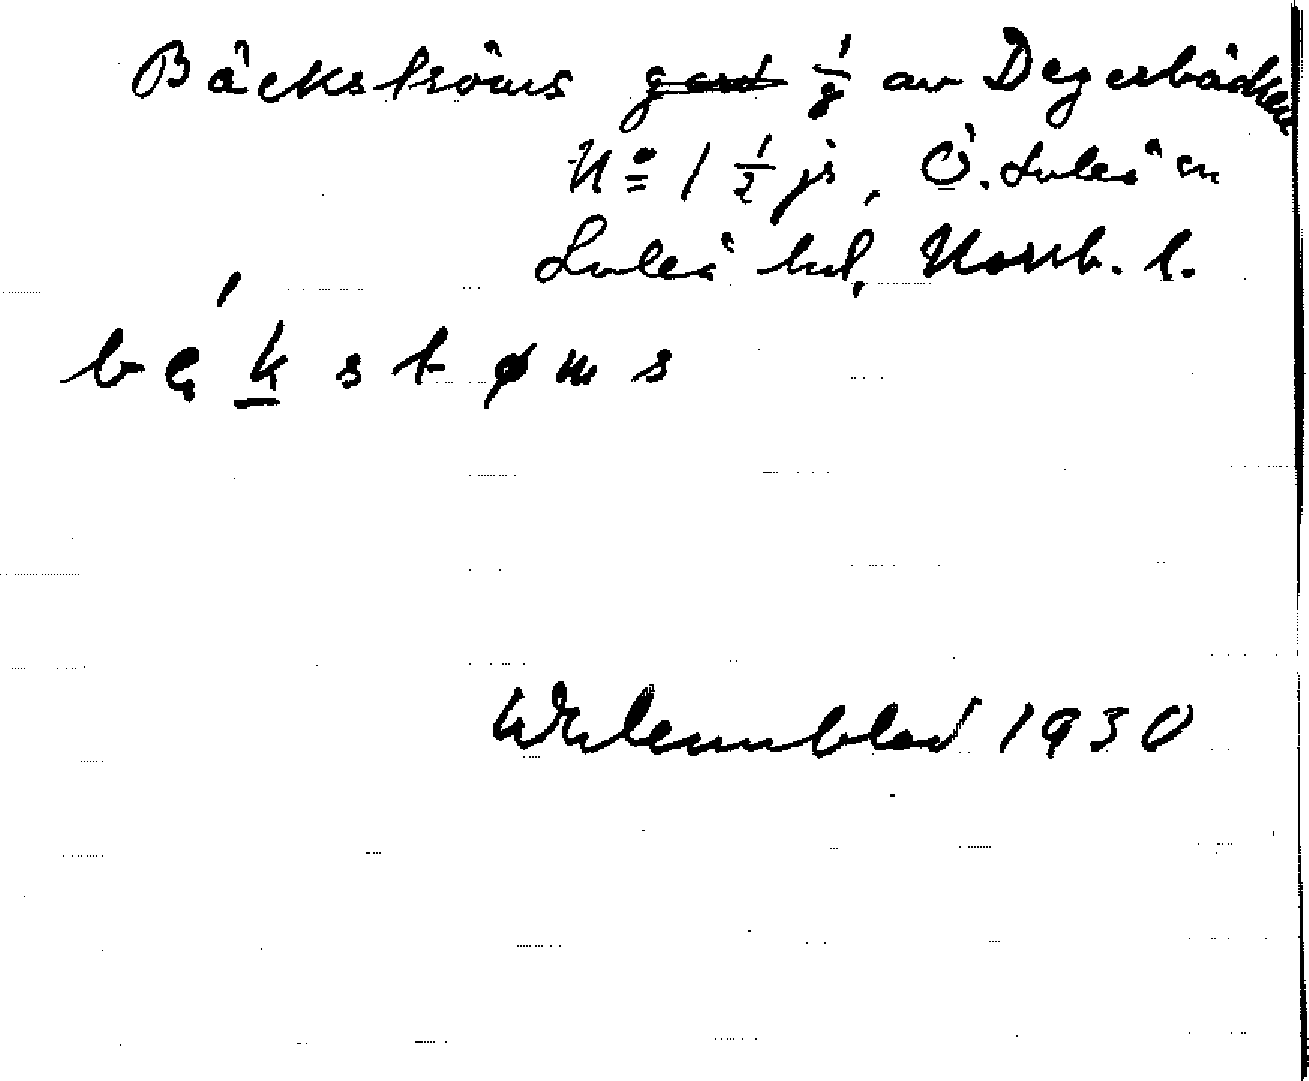 Bäckströms ~~gård~~ 1/8 av Degerbäcken
No 1 1/2 js, Ö. Luleå sn
Luleå tul, Norrb. l.
bękstøms
Wulennblad 1930